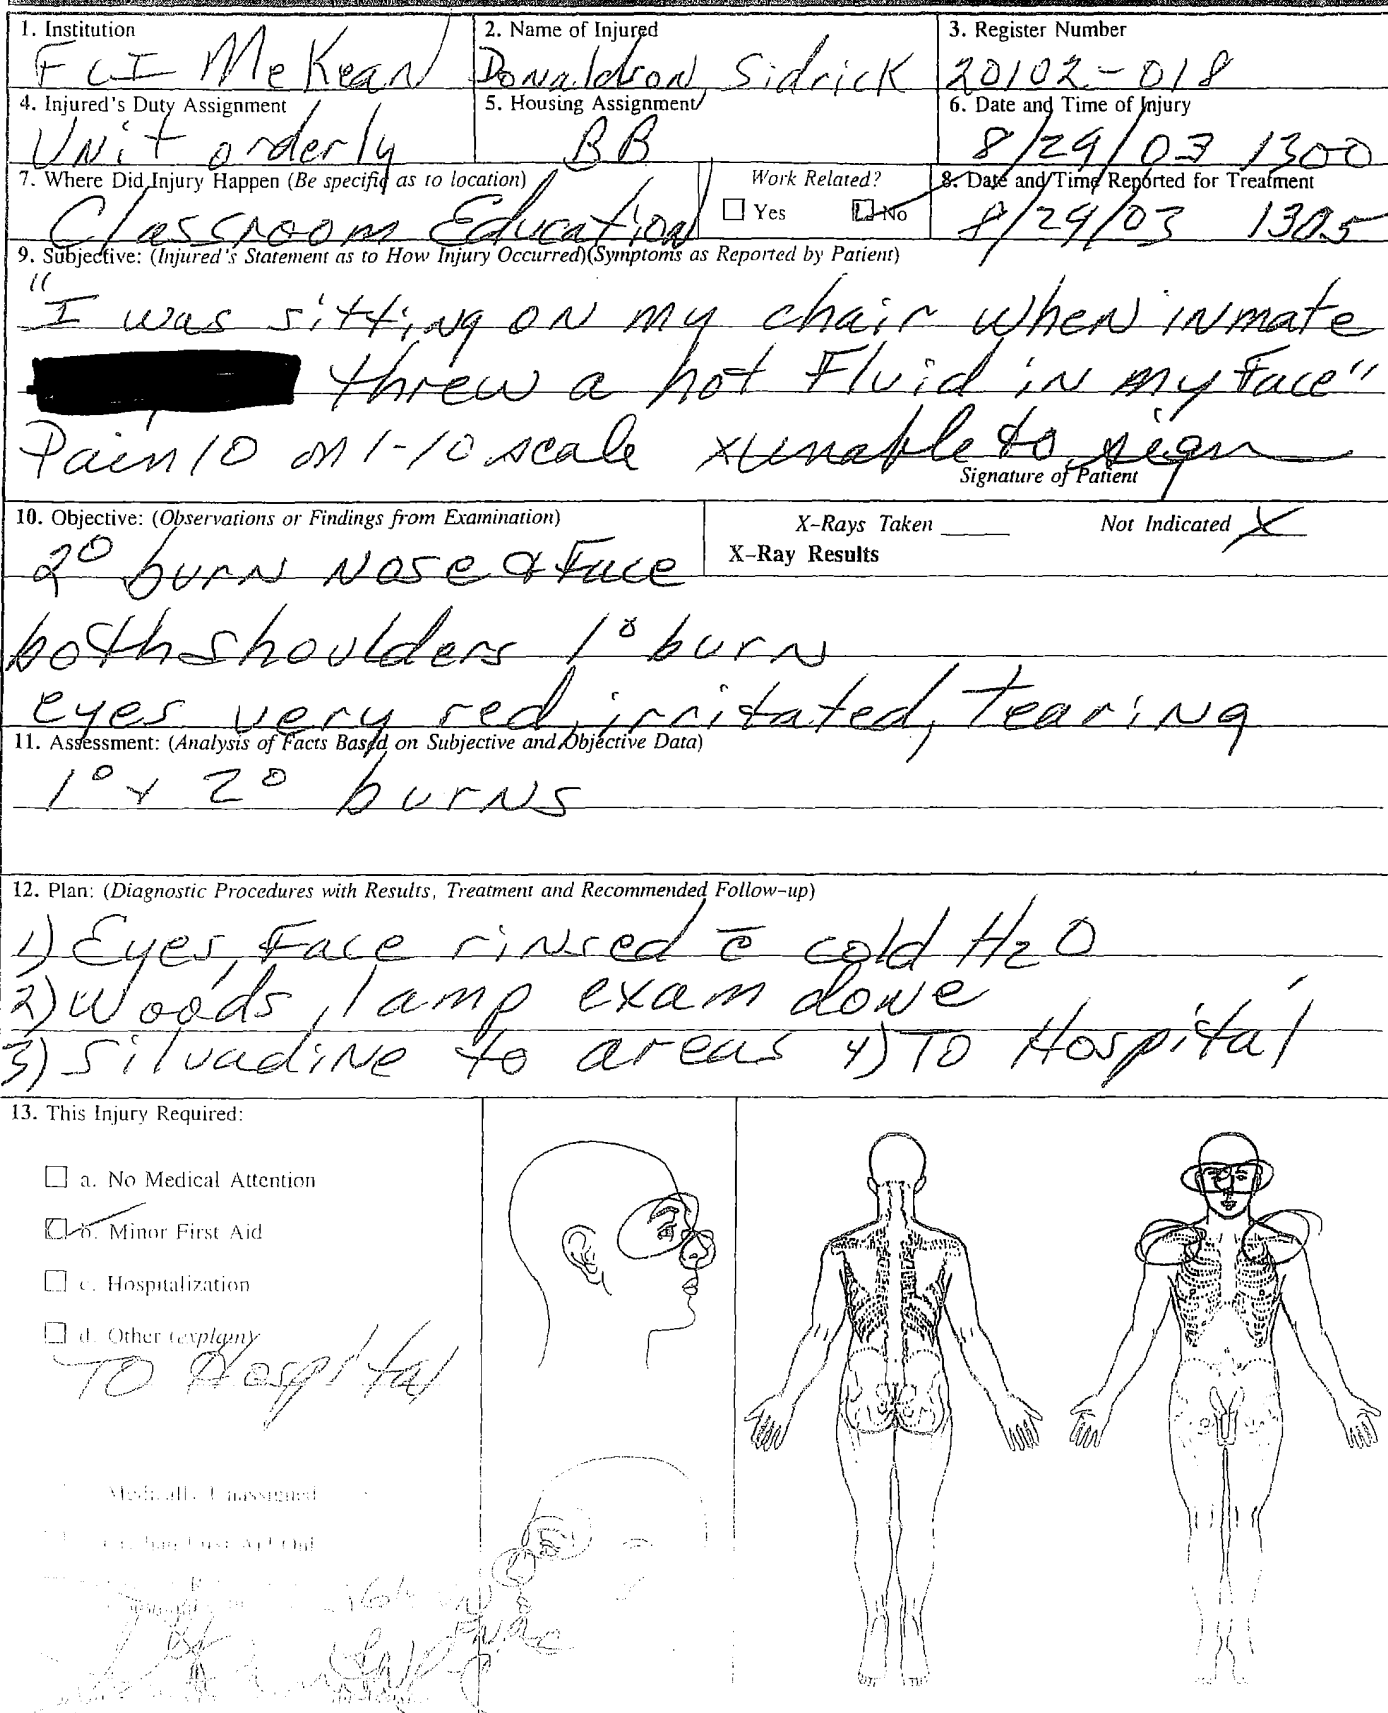 1. Institution
FCI McKean
2. Name of Injured
Donaldson, Sidrick
3. Register Number
20102-018
4. Injured's Duty Assignment
Unit orderly
5. Housing Assignment
BB
6. Date and Time of Injury
8/29/03 1300
7. Where Did Injury Happen (Be specific as to location)
Classroom Education
Work Related?
Yes No
8. Date and Time Reported for Treatment
8/29/03 1305
9. Subjective: (Injured's Statement as to How Injury Occurred)(Symptoms as Reported by Patient)
"I was sitting on my chair when inmate
threw a hot Fluid in my Face"
Pain 10 on 1-10 scale x unable to sign
Signature of Patient
10. Objective: (Observations or Findings from Examination)
X-Rays Taken Not Indicated X
X-Ray Results
2° burn Nose & Face
both shoulders 1° burn
eyes very red, irritated, tearing
11. Assessment: (Analysis of Facts Based on Subjective and Objective Data)
1° + 2° burns
12. Plan: (Diagnostic Procedures with Results, Treatment and Recommended Follow-up)
1) Eyes, Face rinsed c̄ cold H2O
2) Woods lamp exam done
3) Silvadine to areas 4) To Hospital
13. This Injury Required:
a. No Medical Attention
b. Minor First Aid
c. Hospitalization
d. Other (explain)
TO Hospital
Medically Unassigned